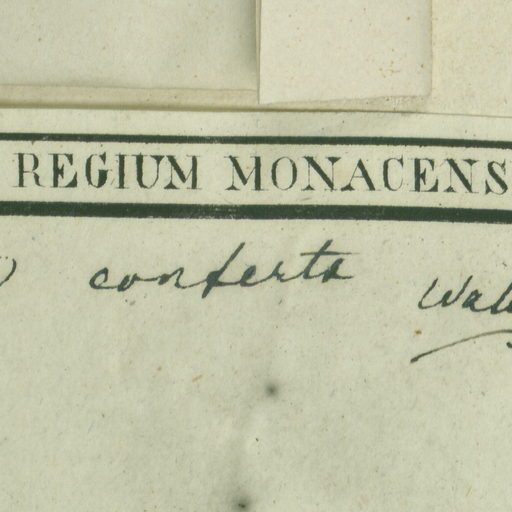 REGIUM MONACENS
conferta Wal